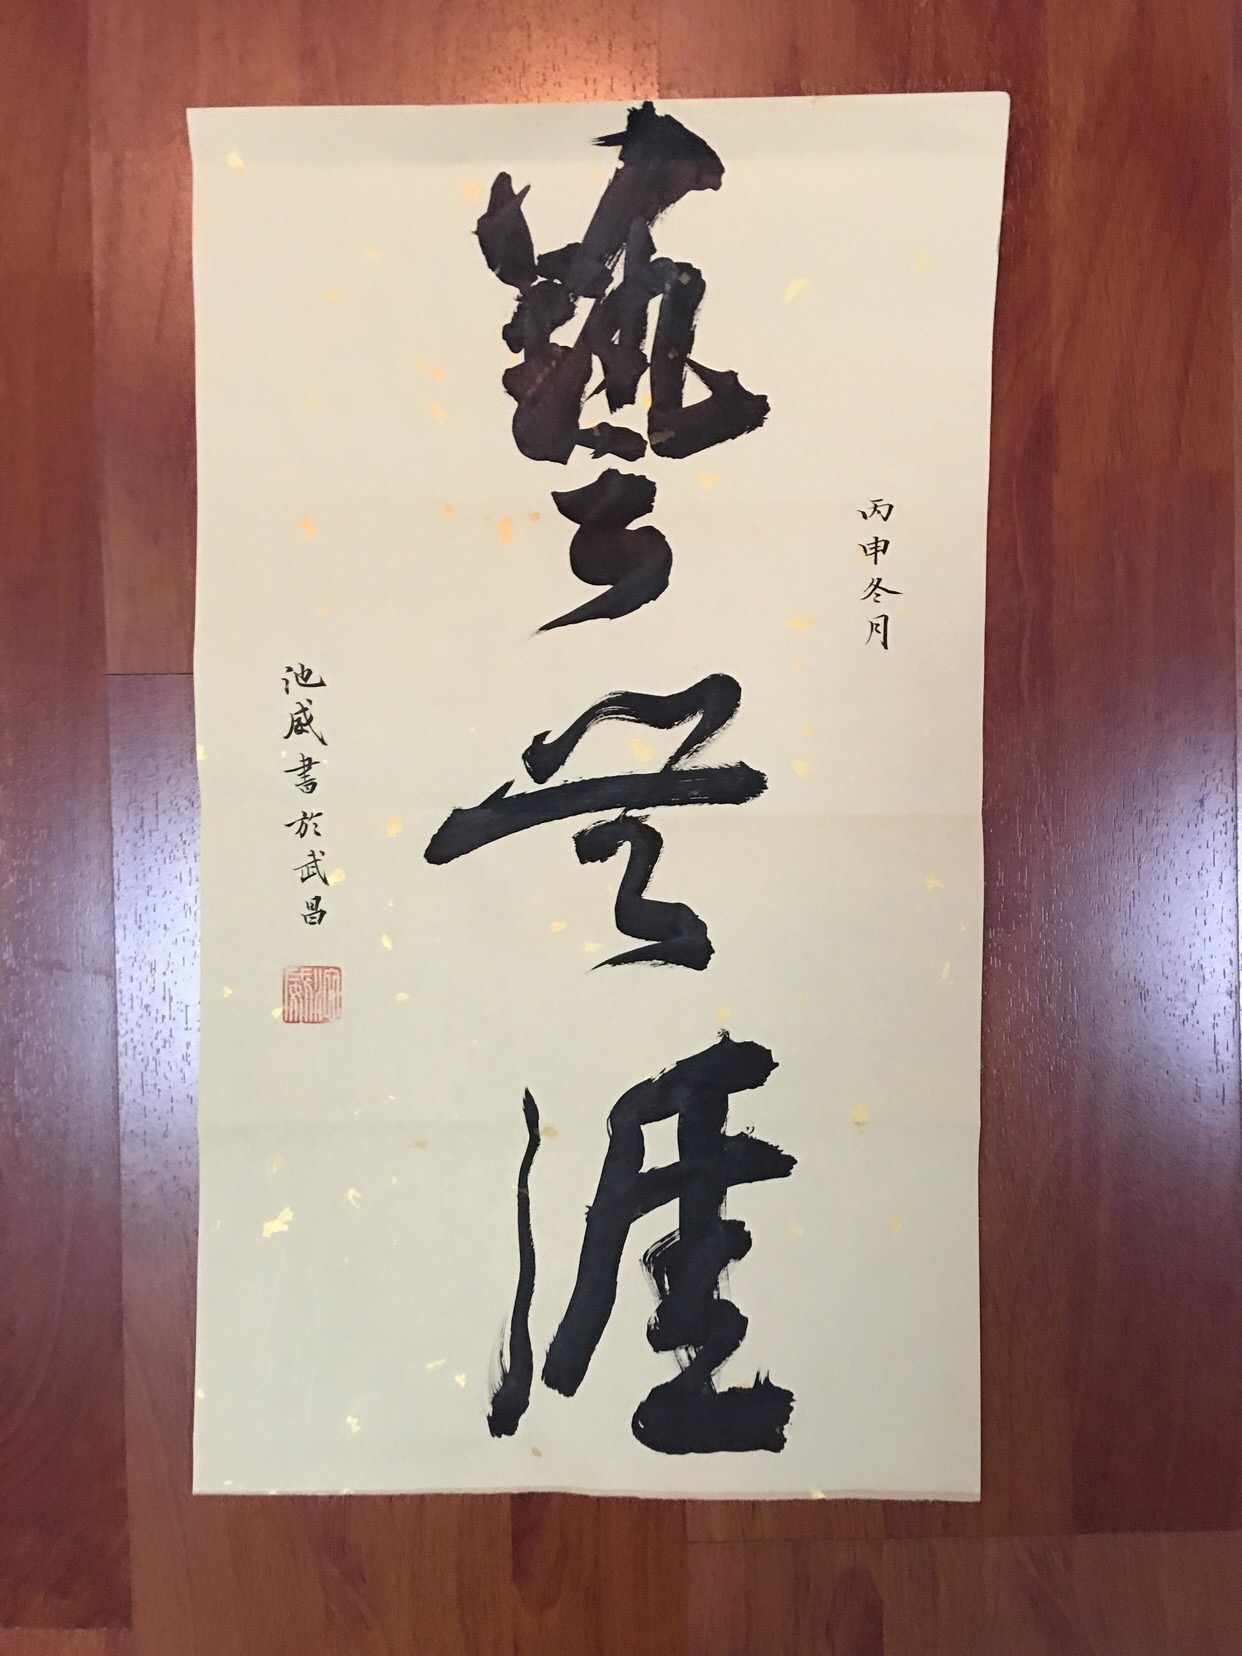 丙申冬月
藝無涯
池威書於武昌